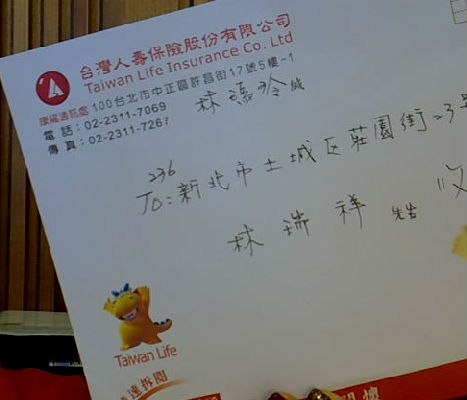 台灣人壽保險股份有限公司
Taiwan Life Insurance Co. Ltd
康福通訊處 100台北市中正區許昌街17號5樓-1
電話：02-2311-7069
傳真：02-2311-7267
林 玲 緘
236
To: 新北市土城区莊園街23
林瑞祥 先生
Taiwan Life
速拆閱